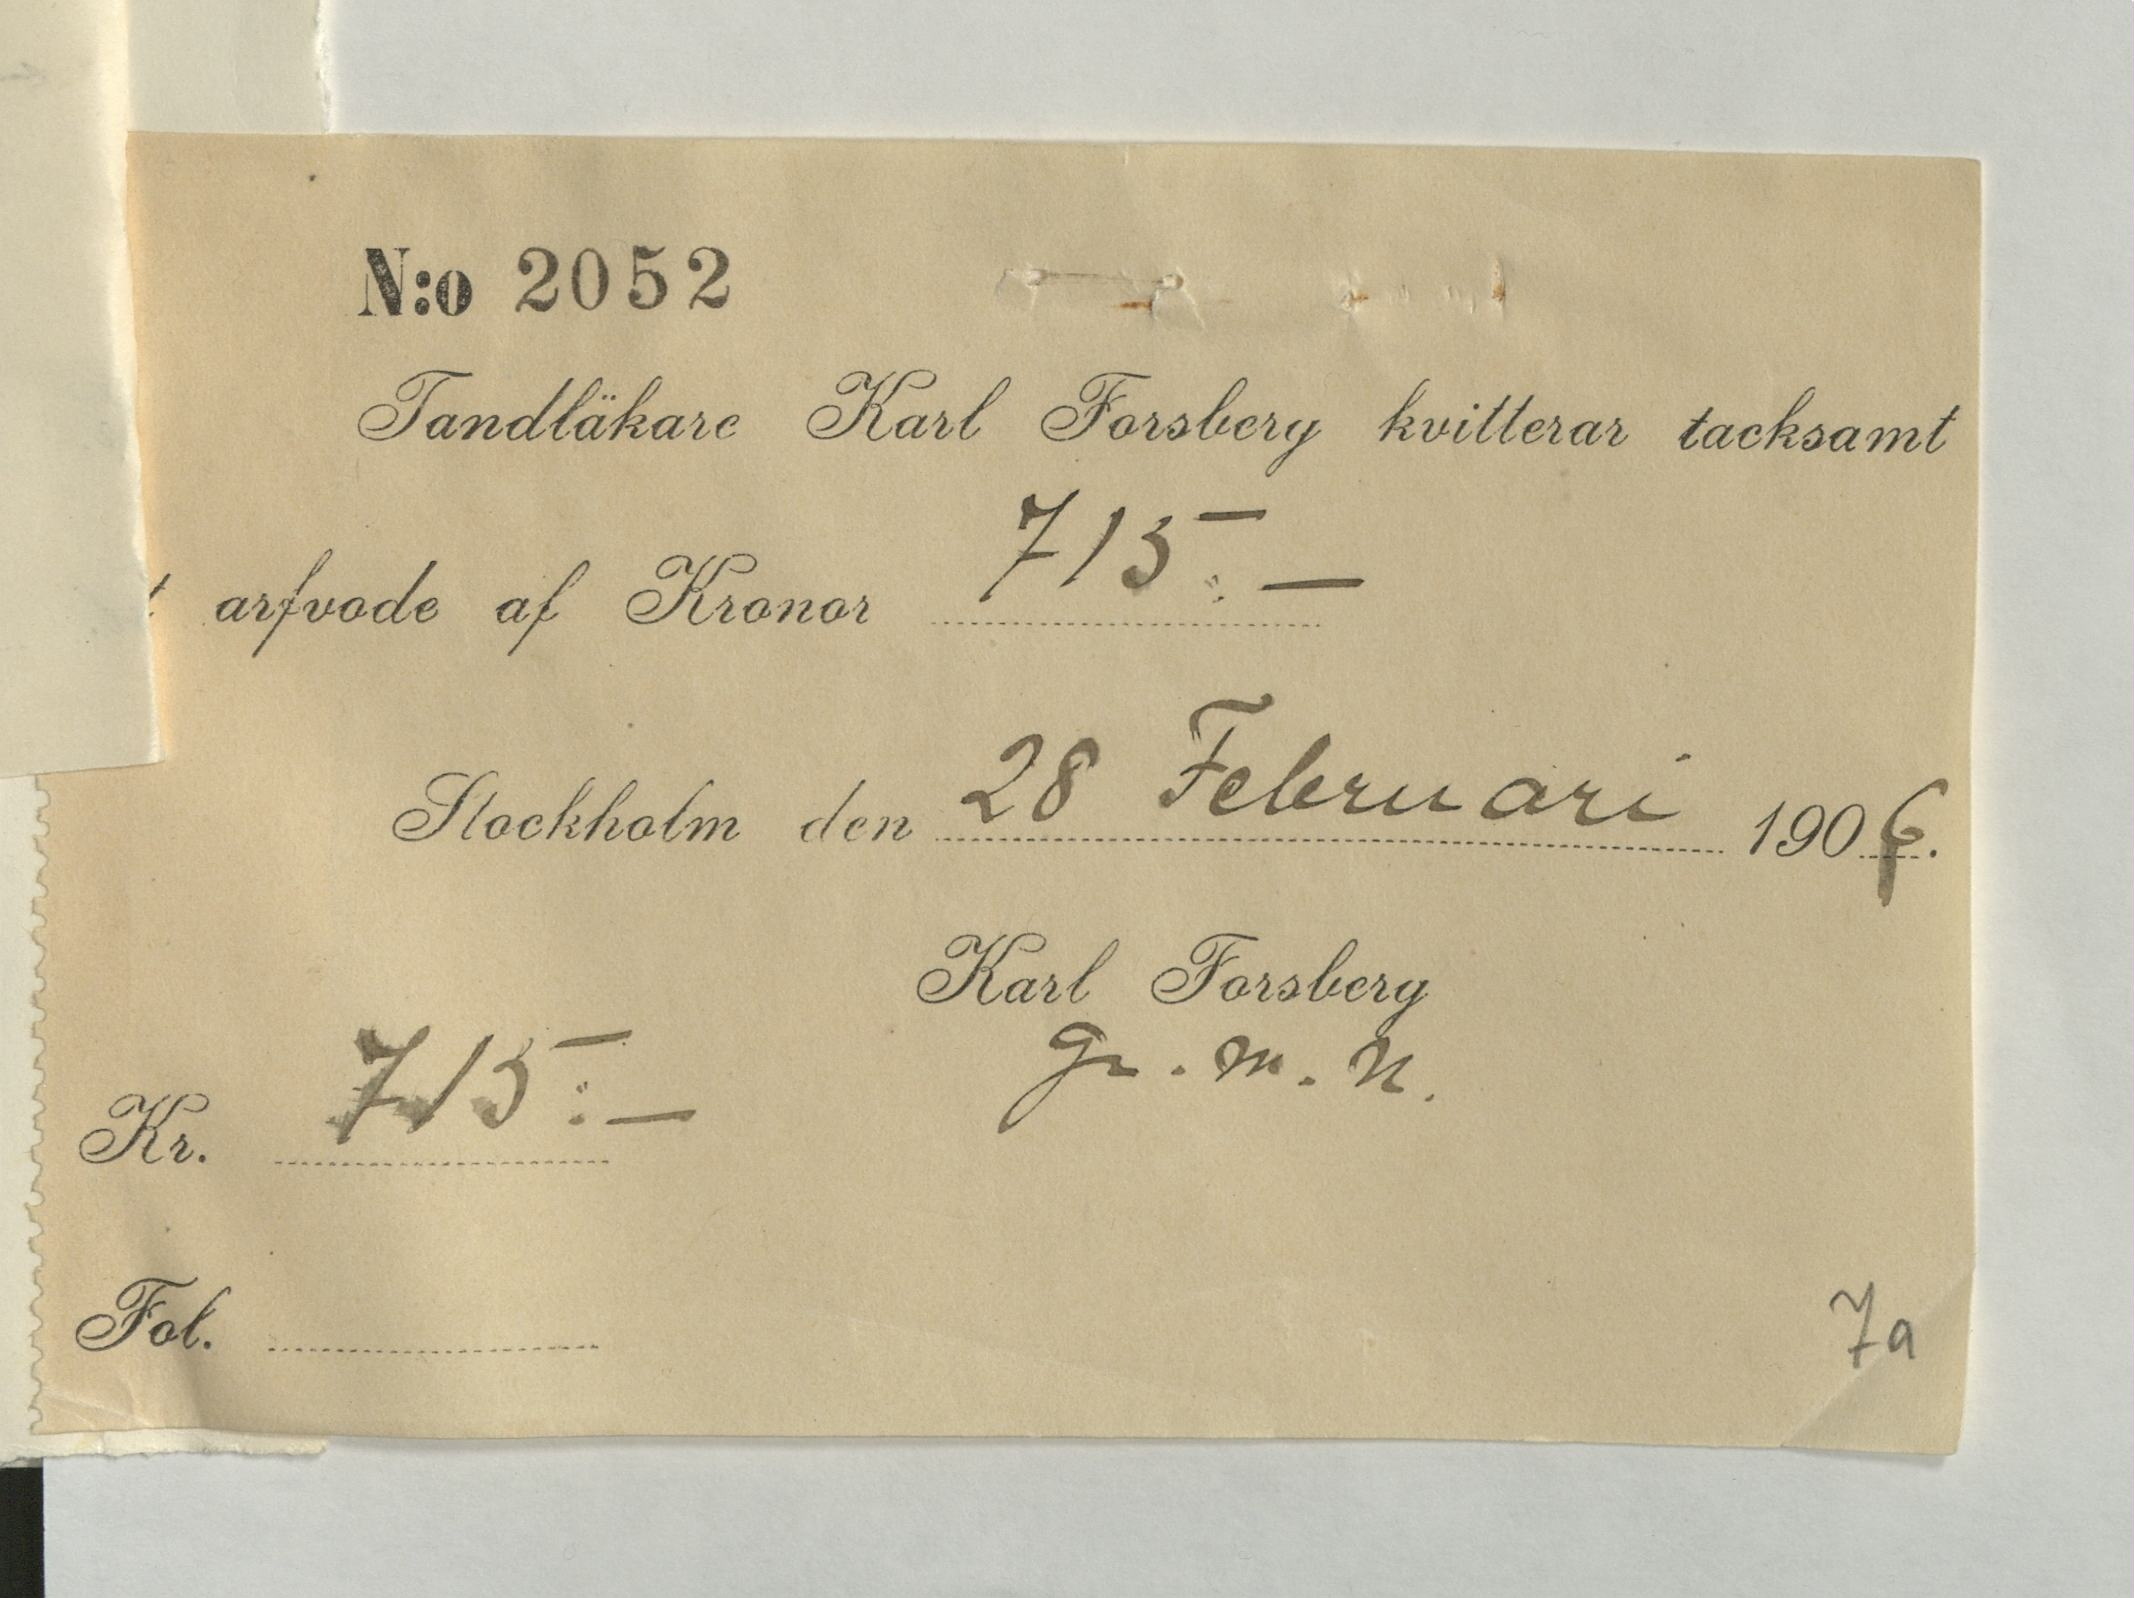 N:o 2052
Tandläkare Karl Forsberg kvitterar tacksamt
t arfvode af Kronor 715:—
Stockholm den 28 Februari 1906.
Karl Forsberg
gm. M. N.
Kr. 715:—
Fol.
7a